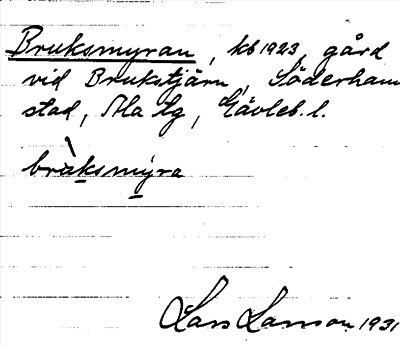 Bruksmyran, kb 1923, gård
vid Brukstjärn, Söderhamn
stad, Ma lg, Gävleb. l.
bràksmýra
Lars Larsson 1931